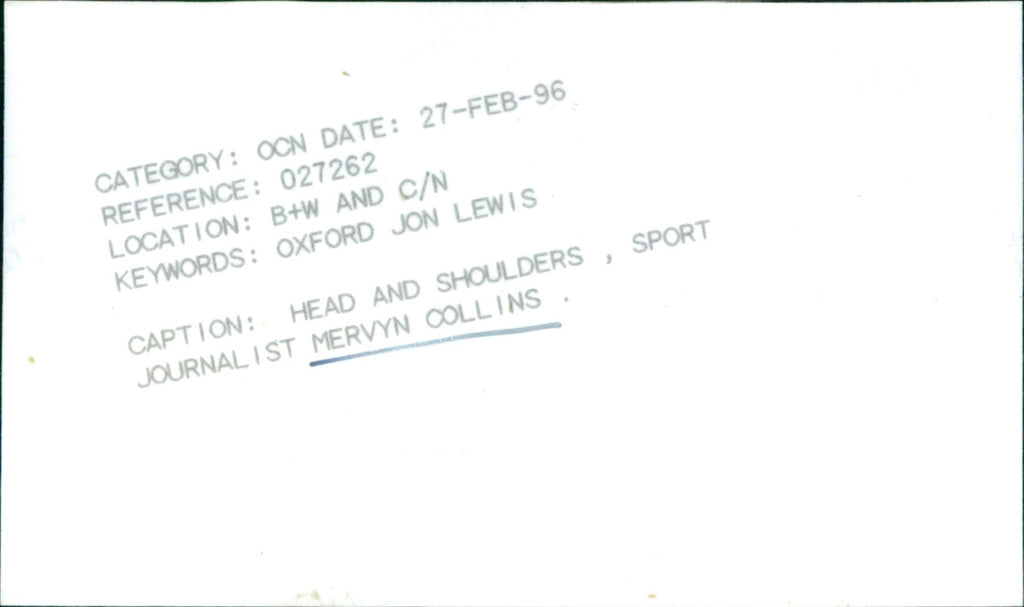 CATEGORY: OCN DATE: 27-FEB-96
REFERENCE: 027262
LOCATION: B+W AND C/N
KEYWORDS: OXFORD JON LEWIS
CAPTION: HEAD AND SHOULDERS , SPORT
JOURNALIST MERVYN COLLINS .